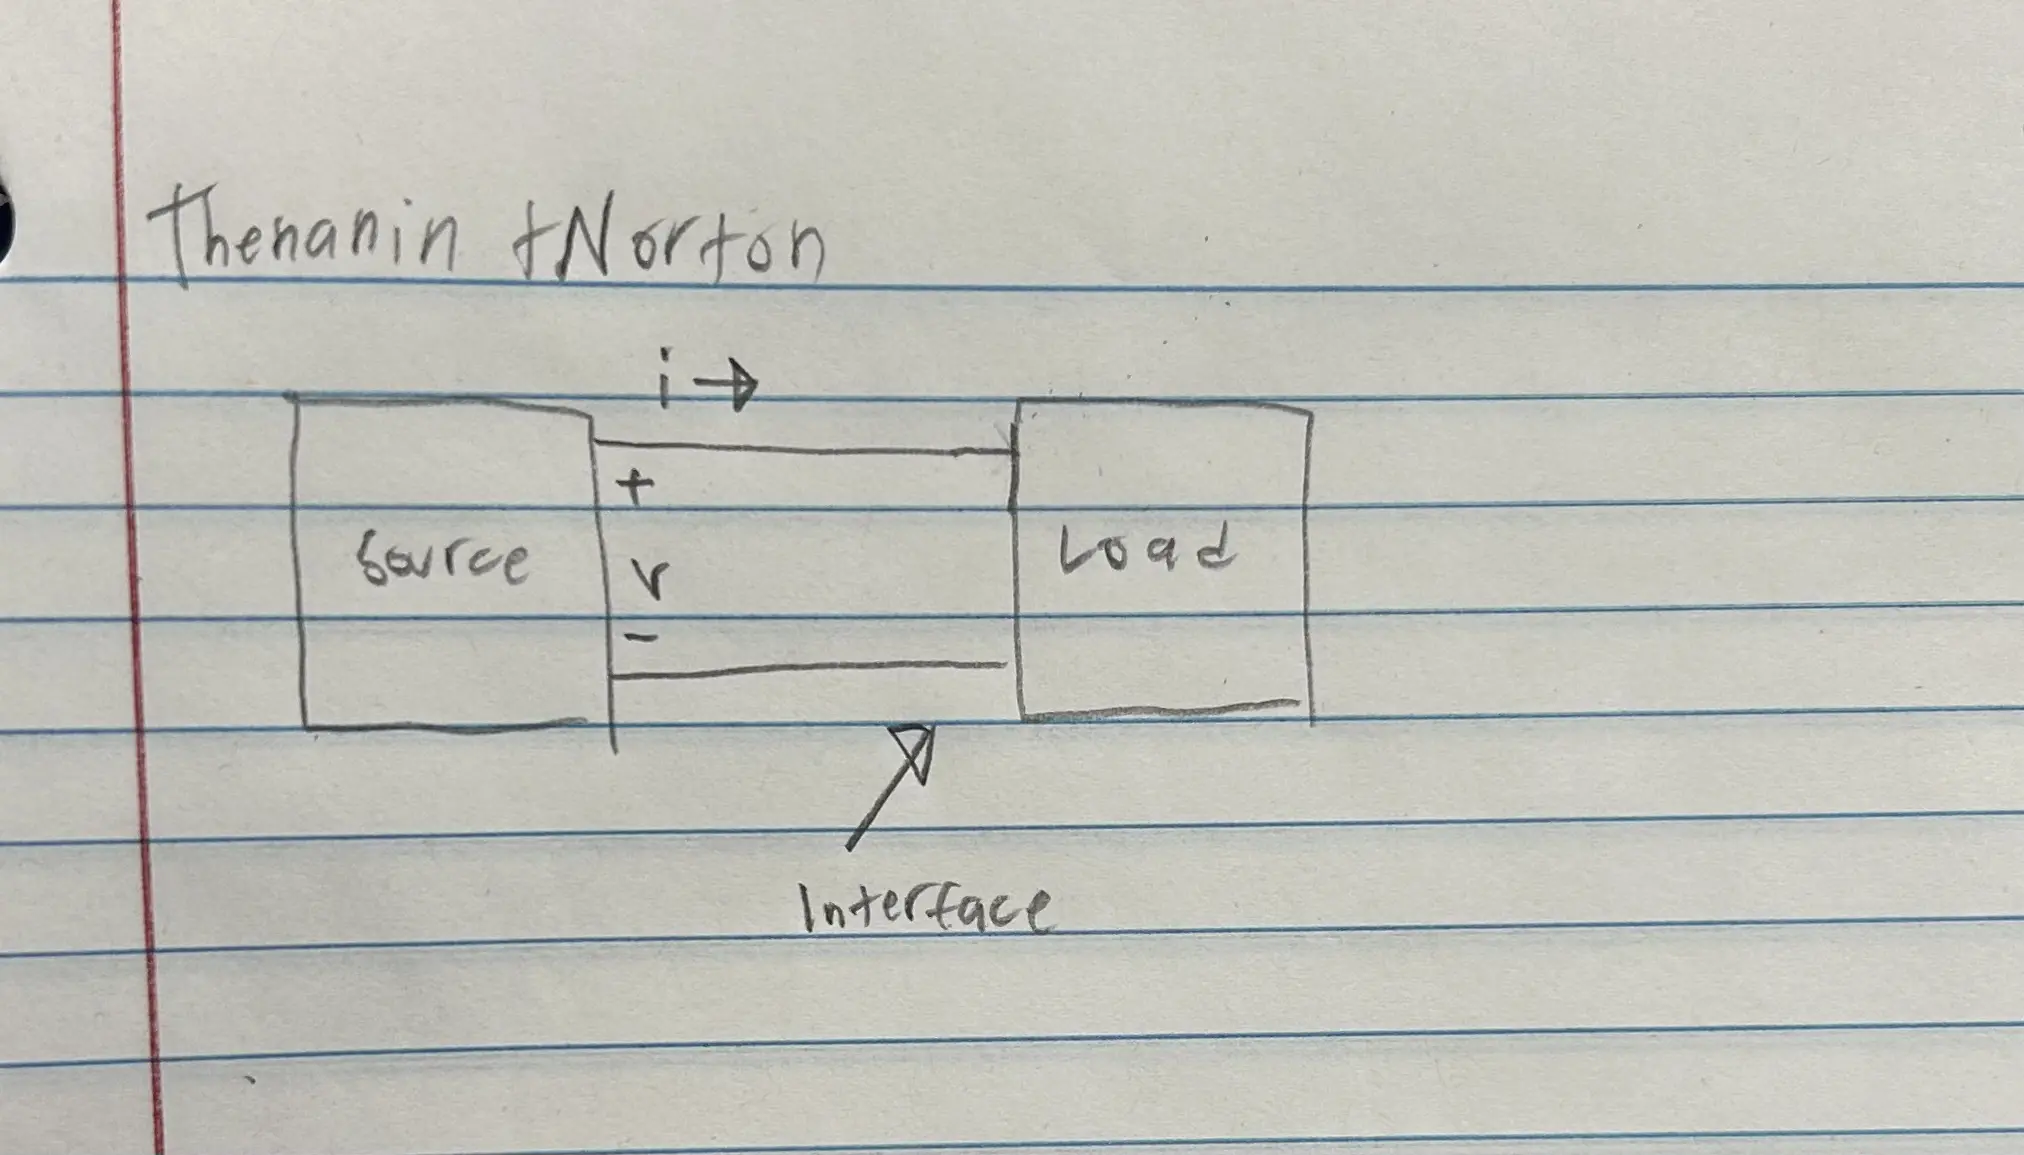 Thenanin + Norton
i →
+
Source
v
Load
-
Interface